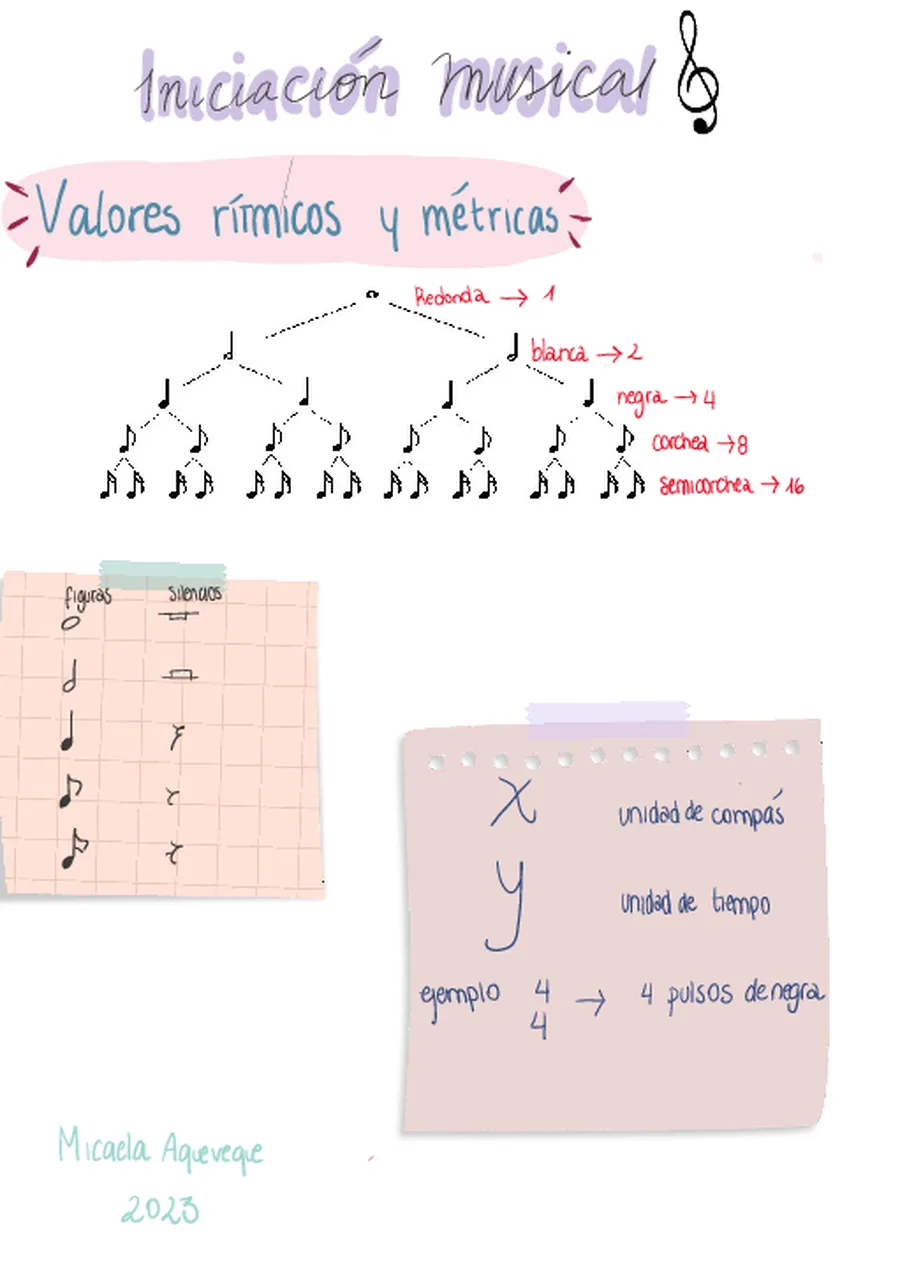 Iniciación musical
Valores rítmicos y métricas
Redonda → 1
blanca → 2
negra → 4
corchea → 8
semicorchea → 16
figuras silencios
x unidad de compás
y unidad de tiempo
ejemplo 4 → 4 pulsos de negra
4
Micaela Aqueveque
2023